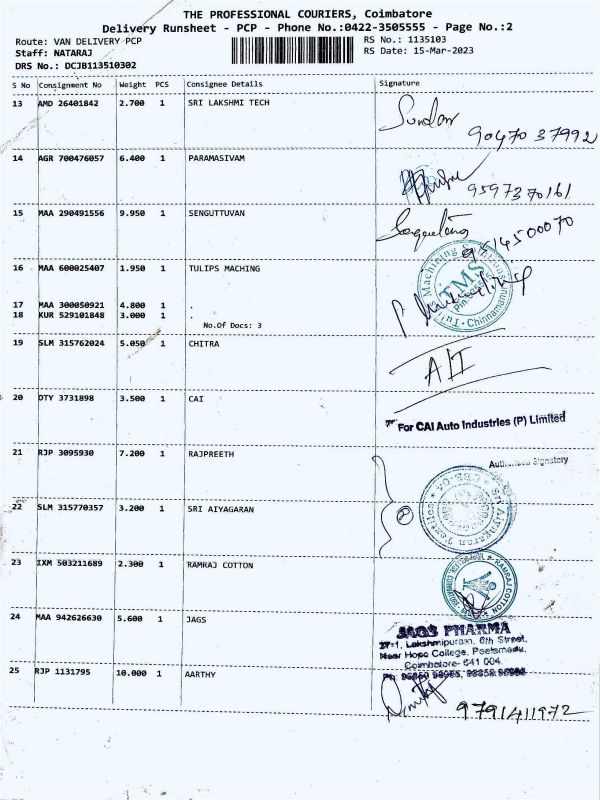 THE PROFESSIONAL COURIERS, Coimbatore
Delivery Runsheet - PCP - Phone No.:0422-3505555 - Page No.:2
Route: VAN DELIVERY PCP RS No.: 1135103
Staff: NATARAJ RS Date: 15-Mar-2023
DRS No.: DCJB113510302
S No Consignment No Weight PCS Consignee Details Signature
13 AMD 26401842 2.700 1 SRI LAKSHMI TECH
90470 37992
14 AGR 700476057 6.400 1 PARAMASIVAM
9597370161
15 MAA 290491556 9.950 1 SENGUTTUVAN
9514500070
16 MAA 600025407 1.950 1 TULIPS MACHING
TMS
17 MAA 300050921 4.800 1 .
18 KUR 529101848 3.000 1 .
No.Of Docs: 3
19 SLM 315762024 5.050 1 CHITRA
A/I
20 DTY 3731898 3.500 1 CAI
For CAI Auto Industries (P) Limited
21 RJP 3095930 7.200 1 RAJPREETH
Authorised Signatory
22 SLM 315770357 3.200 1 SRI AIYAGARAN
2
23 IXM 503211689 2.300 1 RAMRAJ COTTON
RAMRAJ COTTON
24 MAA 942626630 5.600 1 JAGS
JAGS PHARMA
27-1, Lakshmipuram, 6th Street,
Near Hope College, Peelamedu,
Coimbatore- 641 004.
25 RJP 1131795 10.000 1 AARTHY
9791411972